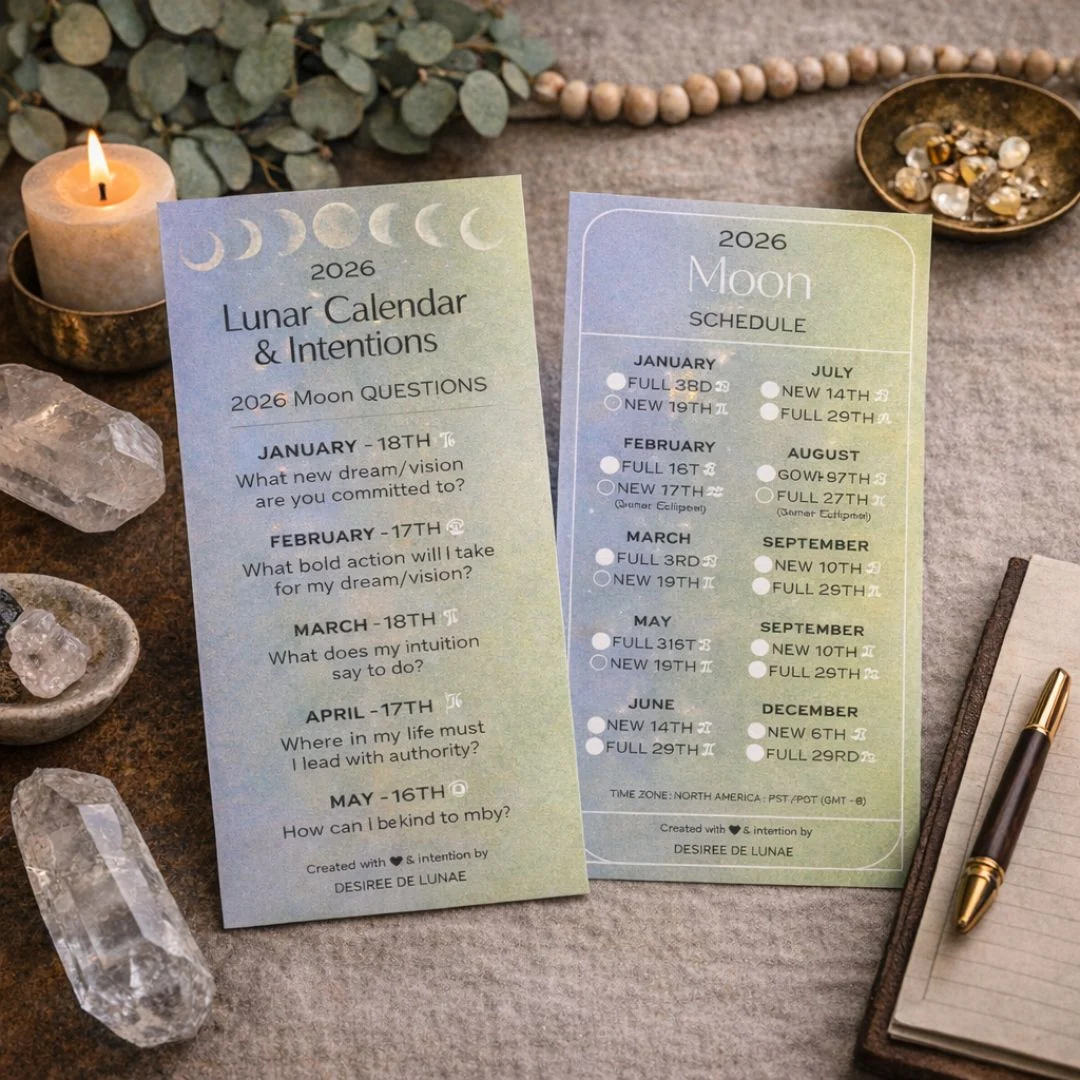 2026
Lunar Calendar
& Intentions
2026 Moon QUESTIONS
JANUARY - 18TH
What new dream/vision
are you committed to?
FEBRUARY - 17TH
What bold action will I take
for my dream/vision?
MARCH - 18TH
What does my intuition
say to do?
APRIL - 17TH
Where in my life must
I lead with authority?
MAY - 16TH
How can I be kind to mby?
Created with ♥ & intention by
DESIREE DE LUNAE
2026
Moon
SCHEDULE
JANUARY
FULL 3BD
NEW 19TH
FEBRUARY
FULL 16T
NEW 17TH
MARCH
FULL 3RD
NEW 19TH
MAY
FULL 316T
NEW 19TH
JUNE
NEW 14TH
FULL 29TH
JULY
NEW 14TH
FULL 29TH
AUGUST
97TH
FULL 27TH
SEPTEMBER
NEW 10TH
FULL 29TH
SEPTEMBER
NEW 10TH
FULL 29TH
DECEMBER
NEW 6TH
FULL 29RD
TIME ZONE: NORTH AMERICA: PST/PDT (GMT -8)
Created with ♥ & intention by
DESIREE DE LUNAE